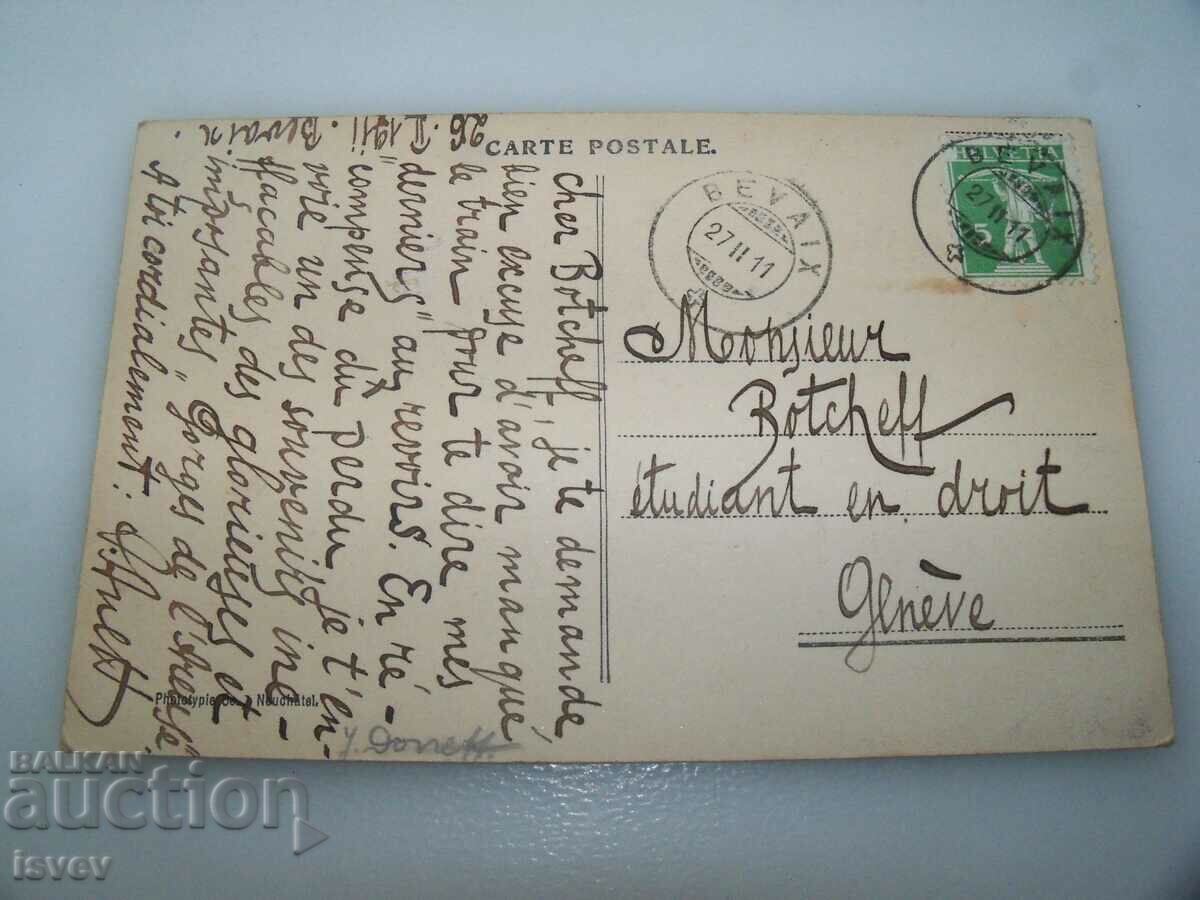 CARTE POSTALE.
26. II 1911. Bevaix.
Cher Botcheff, je te demande
bien excuse d'avoir manqué
le train pour te dire mes
derniers "au revoirs. En ré-
compense du perdu je t'en-
voie un des souvenirs ine-
ffacables des glorieuses et
imposantes „Gorges de l'Areuse".
A toi cordialement:
Phototypie Neuchâtel.
Y. Doneff.
BEVAIX
27 II 11
HELVETIA
5
BEVAIX
27 II 11
Monsieur
Botcheff
étudiant en droit
Genève
BALKAN
auction
isvev